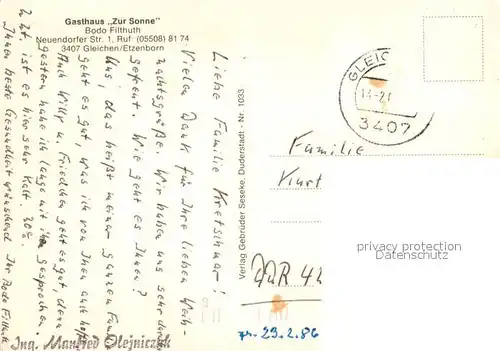 Gasthaus „Zur Sonne"
Bodo Filthuth
Neuendorfer Str. 1, Ruf: (05508) 81 74
3407 Gleichen/Etzenborn
Liebe Familie Kretschmar!
Vielen Dank für Ihre lieben Weih-
nachtsgrüße. Wir haben uns sehr darüber
gefreut. Wie geht es Ihnen?
Uns, das heißt meiner ganzen Familie
geht es gut, was ich von Ihnen auch hoffe.
Auch Willy u. Frieden geht es gut, denn
gestern habe ich lange mit ihm gesprochen.
Z. Zt. ist es hier sehr kalt. 20°.
Ihnen beste Gesundheit wünschend Ihr Bodo Filthuth
Verlag Gebrüder Seseke, Duderstadt - Nr. 1033
GLEIC
3407
Familie
Kurt
privacy protection
watermark
DDR 42
29.2.86
Ing. Manfred Olejniczak